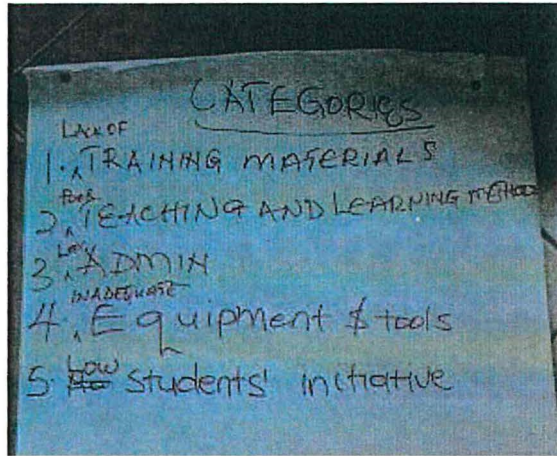 CATEGORIES
LACK OF
1. TRAINING MATERIALS
POOR
2. TEACHING AND LEARNING METHODS
3. ADMIN
INADEQUATE
4. Equipment & tools
5. LOW students' initiative